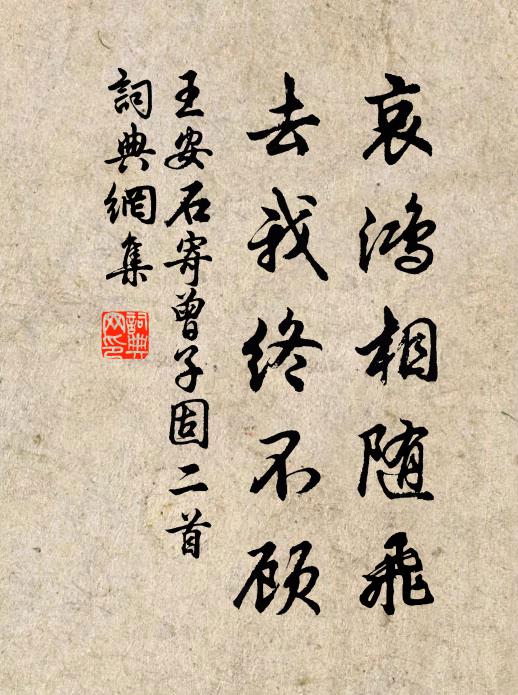 哀鸿相随飛
去我终不顾
王安石寄曾子固二首
詞典網集
詞典
网印